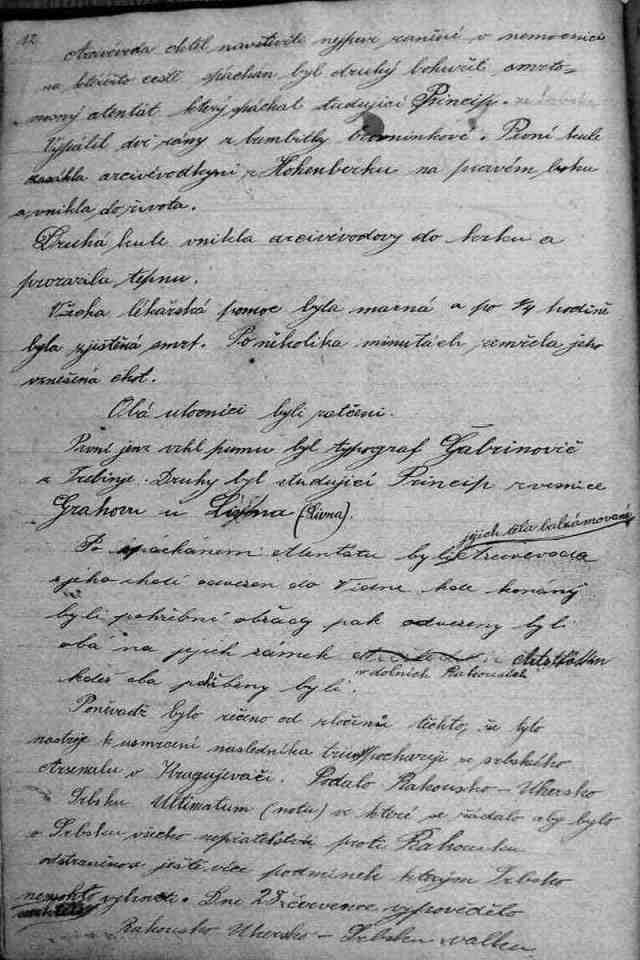 12
Arcivévoda chtěl navštíviti nejprve raněné v nemocnici
na kteréžto cestě spáchán byl druhý bohužel smrto-
nosný atentát který spáchal studující Princip.
Vypálil dvě rány z bambitky brovninkové. První kule
zasáhla arcivévodkyni z Hohenberku na pravém boku
a vnikla do života.
Druhá kule vnikla arcivévodovy do krku a
prorazila tepnu.
Všeka lékářská pomoc byla marná a po 1/4 hodině
byla zjištěná smrt. Po několika minutách zemřela jeho
vznešená choť.
Obá utocníci byli zatčeni.
První jenž vrhl pumu byl typograf Čabrinovič
z Trebinje. Druhy byl studující Princip z vesnice
Grahovu u Livna (Livna).
jejich těla balzámované
Po spáchaném Atentatu byli Arcivevoda
s jeho chotí odvezen do Vídně kde konány
byli pohřební obřady pak odvezeny byli
obá na jejich zámek Artstätten
v dolních Rakousích
kdež oba pohřbeny byli.
Poněvadž bylo řečeno od zločinců těchto, že tyto
nastroje k usmrcení nasledníka trůnu pocházejí ze srbského
Arsenalu v Kragujevači. Podalo Rakousko-Uhersko
Srbsku Ultimatum (notu) v které se žádalo aby bylo
v Srbsku všecko nepřatelství proti Rakousku
odstraněno a ještě více podmínek kterým Srbsko
nemohlo vyhovět. Dne 28 července vypovědělo
Rakousko Uhersko - Srbsku valku.